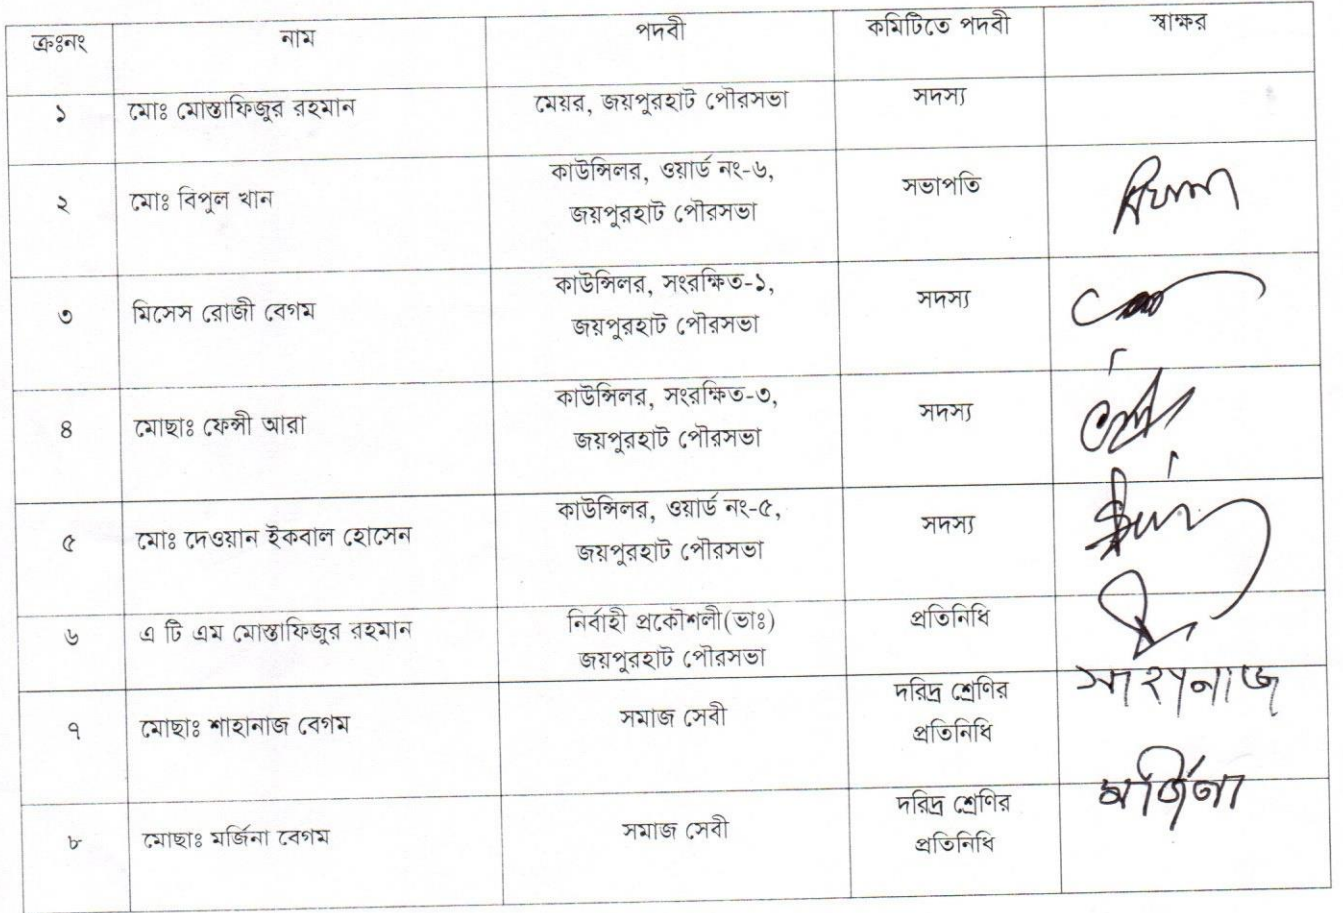 ক্রঃনং নাম পদবী কমিটিতে পদবী স্বাক্ষর
১ মোঃ মোস্তাফিজুর রহমান মেয়র, জয়পুরহাট পৌরসভা সদস্য
২ মোঃ বিপুল খান কাউন্সিলর, ওয়ার্ড নং-৬, সভাপতি
জয়পুরহাট পৌরসভা
৩ মিসেস রোজী বেগম কাউন্সিলর, সংরক্ষিত-১, সদস্য
জয়পুরহাট পৌরসভা
৪ মোছাঃ ফেন্সী আরা কাউন্সিলর, সংরক্ষিত-৩, সদস্য
জয়পুরহাট পৌরসভা
৫ মোঃ দেওয়ান ইকবাল হোসেন কাউন্সিলর, ওয়ার্ড নং-৫, সদস্য
জয়পুরহাট পৌরসভা
৬ এ টি এম মোস্তাফিজুর রহমান নির্বাহী প্রকৌশলী(ভাঃ) প্রতিনিধি
জয়পুরহাট পৌরসভা
৭ মোছাঃ শাহানাজ বেগম সমাজ সেবী দরিদ্র শ্রেণির
প্রতিনিধি
৮ মোছাঃ মর্জিনা বেগম সমাজ সেবী দরিদ্র শ্রেণির মর্জিনা
প্রতিনিধি